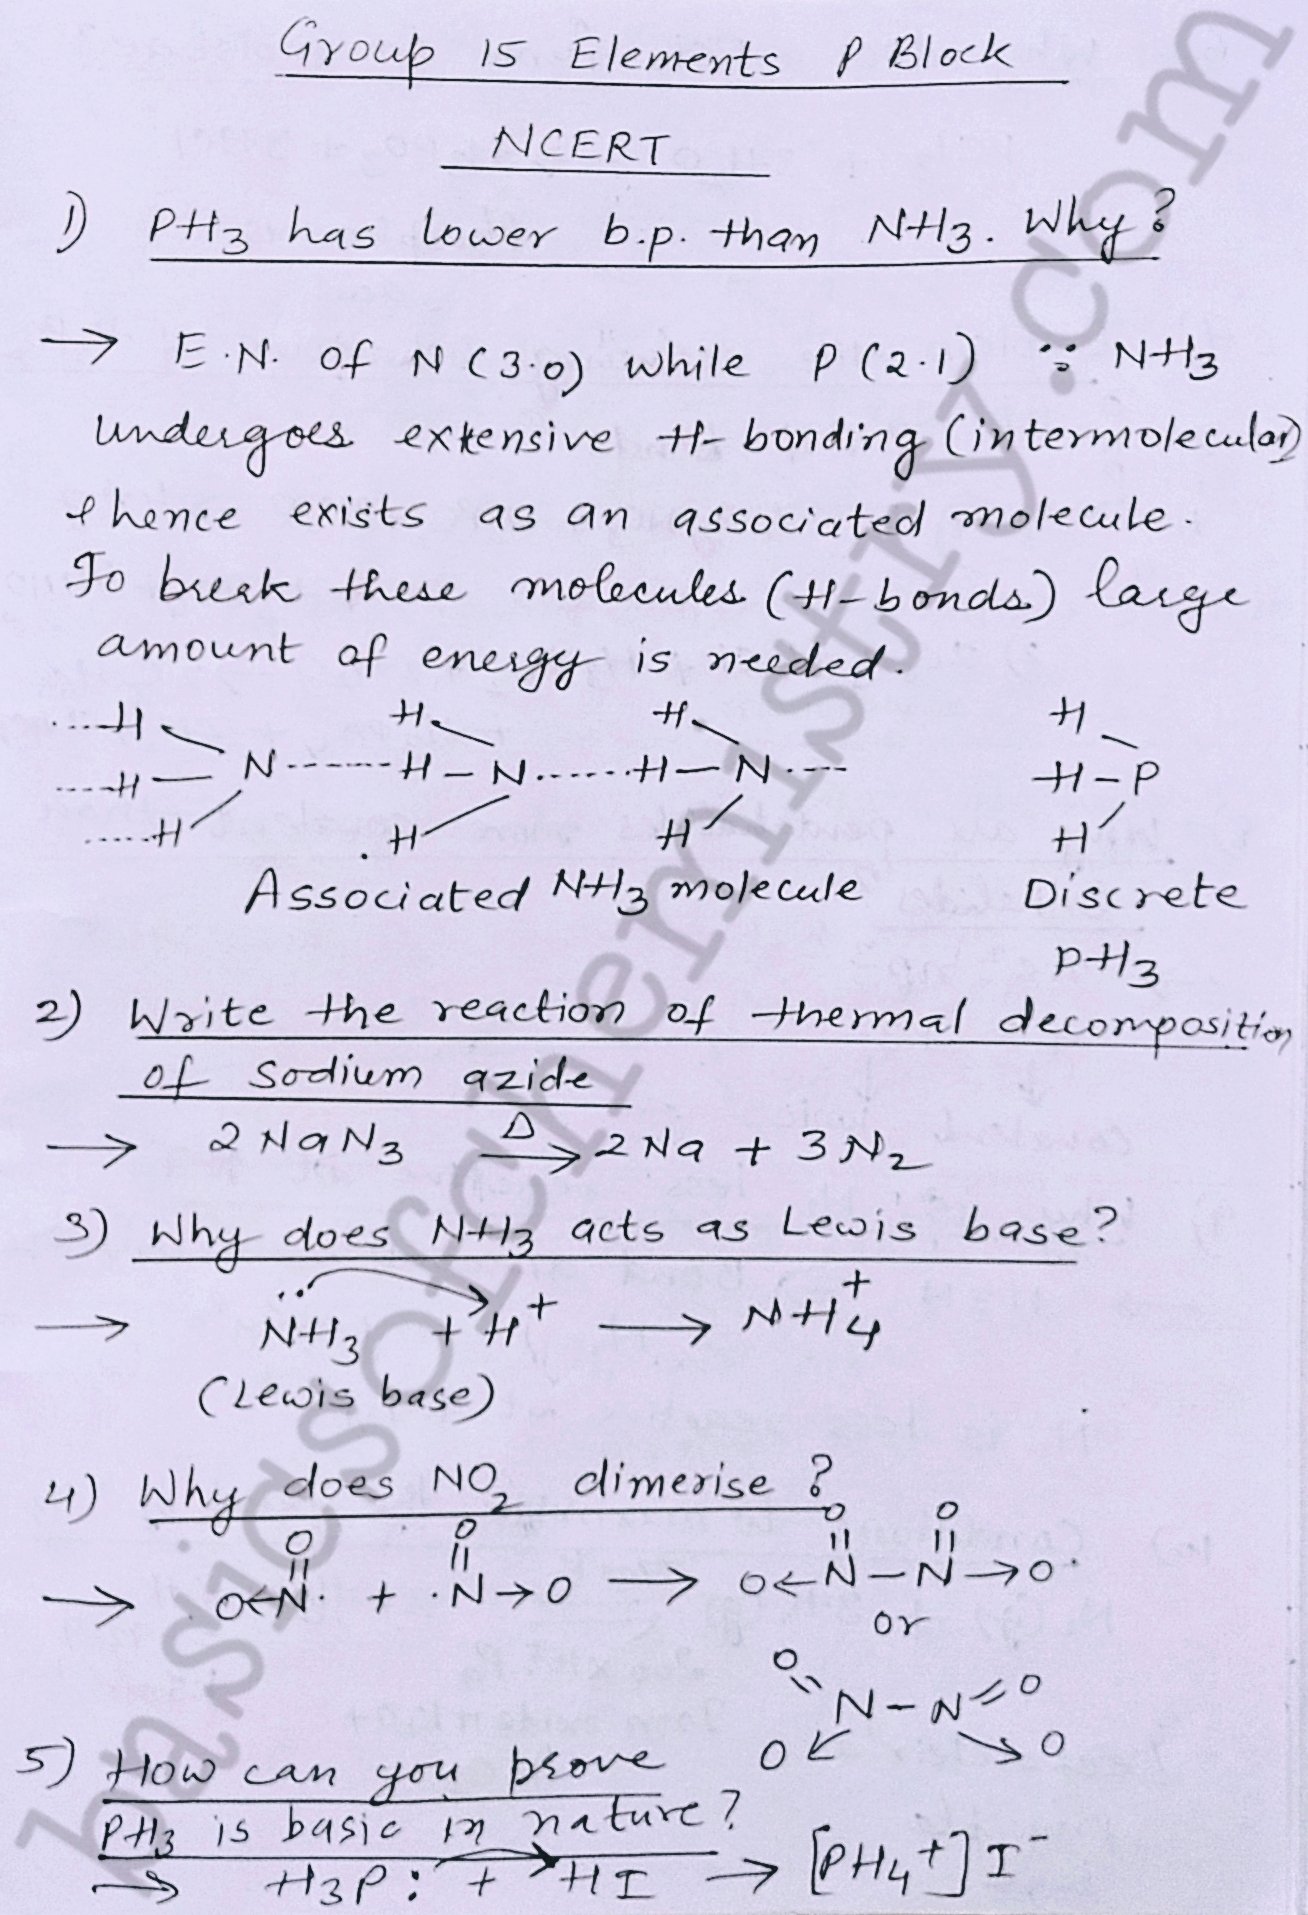 Group 15 Elements P Block
NCERT
1) PH3 has lower b.p. than NH3. Why?
→ E.N. of N (3.0) while P (2.1) ∵ NH3
undergoes extensive H-bonding (intermolecular)
& hence exists as an associated molecule.
To break these molecules (H-bonds) large
amount of energy is needed.
....H H H H
....H — N ------ H — N ...... H — N .... H – P
....H H H H
Associated NH3 molecule Discrete
PH3
2) Write the reaction of thermal decomposition
of sodium azide
→ 2 NaN3 Δ→ 2 Na + 3 N2
3) Why does NH3 acts as Lewis base?
→ N̈H3 + H+ → NH4+
(Lewis base)
4) Why does NO2 dimerise ?
O O O O
→ O←N· + ·N→O → O←N–N→O
or
O N–N O
O O
5) How can you prove
PH3 is basic in nature?
→ H3P: + HI → [PH4+] I-
basicsofchemistry.com